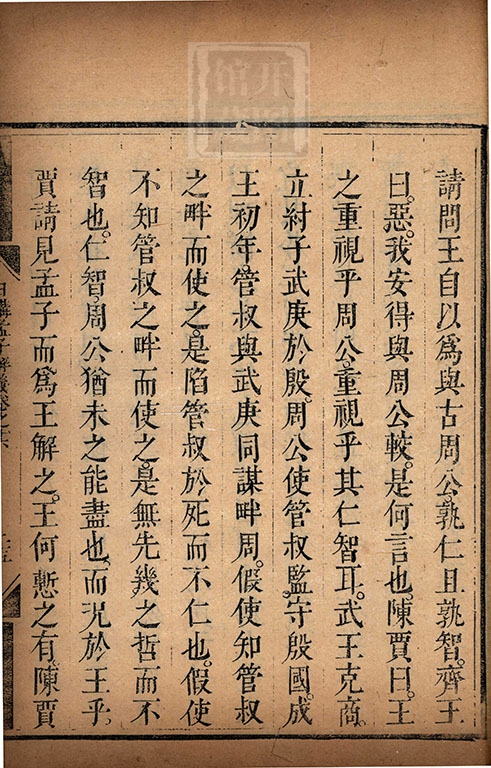 請問王自以爲與古周公孰仁且孰智。齊王
曰。惡。我安得與周公較。是何言也。陳賈曰。王
之重視乎周公。重視乎其仁智耳。武王克商。
立紂子武庚於殷。周公使管叔監。守殷國。成
王初年。管叔與武庚同謀畔周。假使知管叔
之畔而使之。是陷管叔於死而不仁也。假使
不知管叔之畔而使之。是無先幾之哲而不
智也。仁智。周公猶未之能盡也。而況於王乎。
賈請見孟子而爲王解之。王何慙之有。陳賈